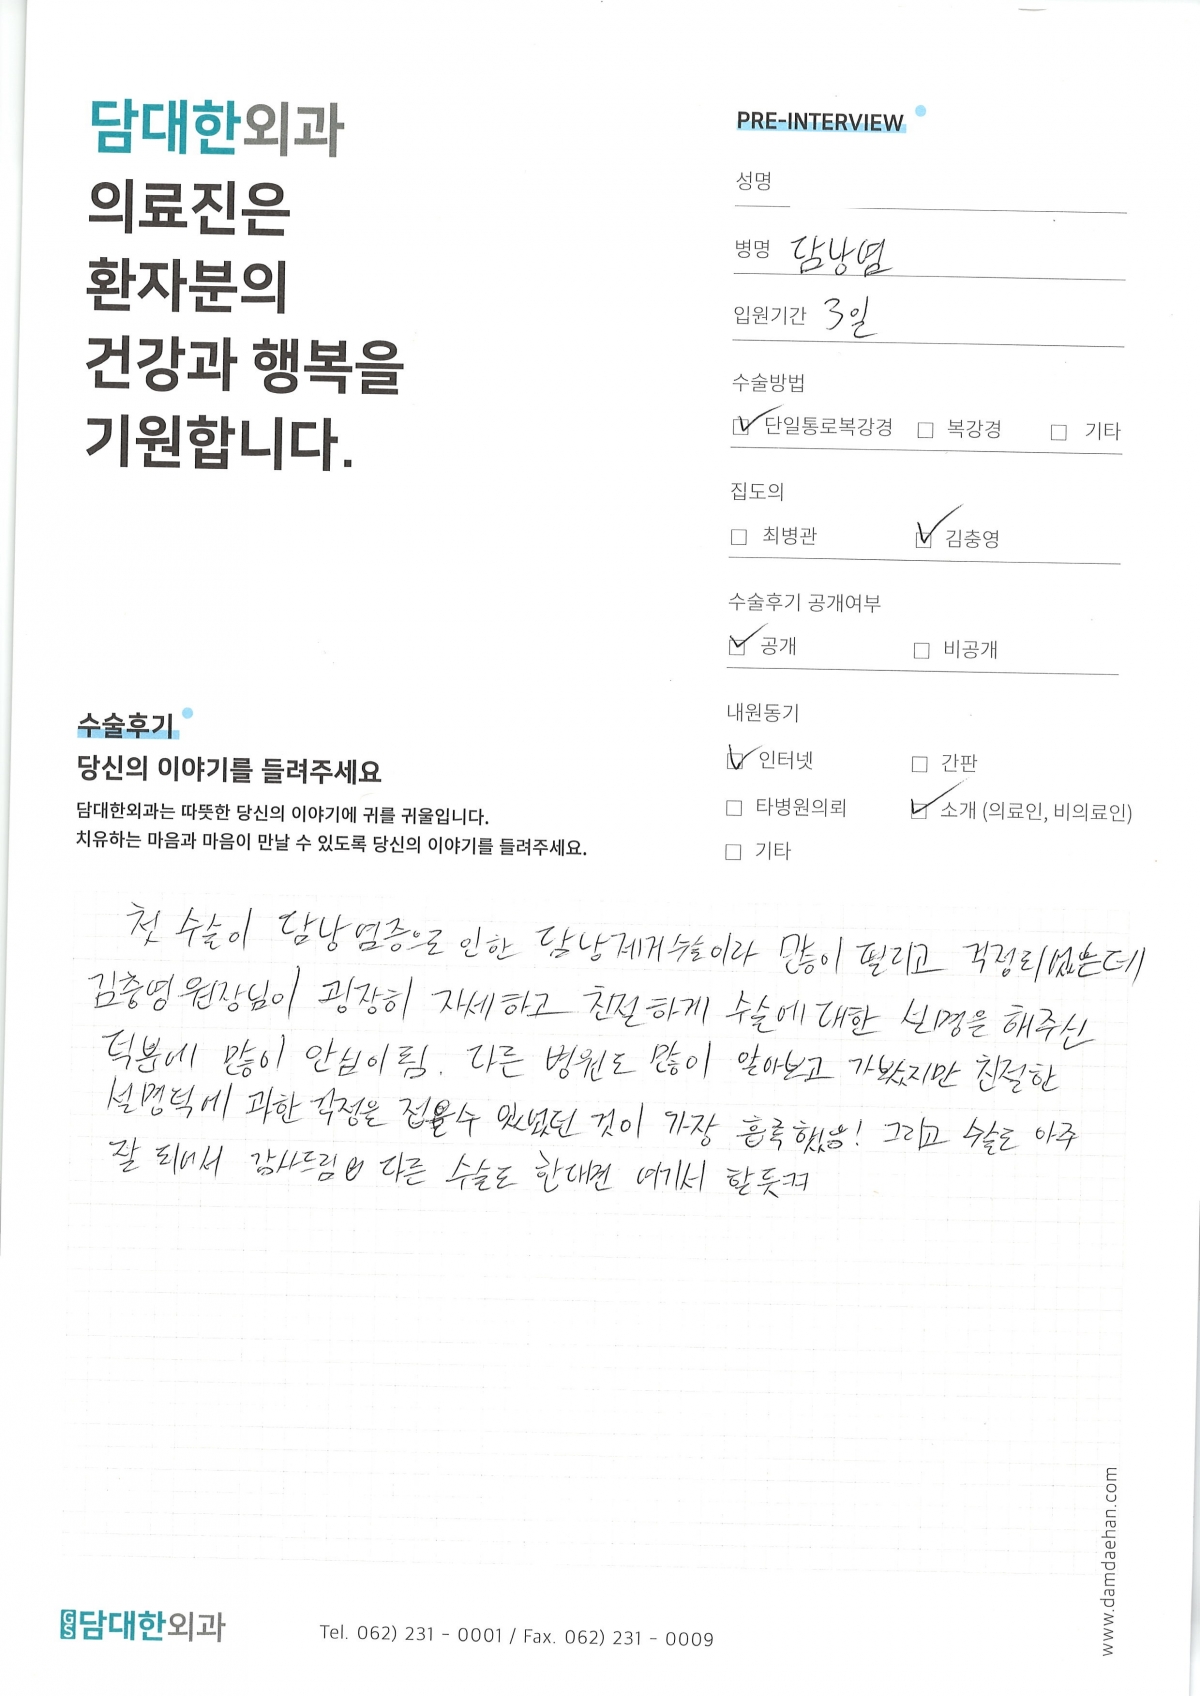 담대한외과
의료진은
환자분의
건강과 행복을
기원합니다.
PRE-INTERVIEW
성명
병명 담낭염
입원기간 3일
수술방법
단일통로복강경 복강경 기타
집도의
최병관 김충영
수술후기 공개여부
공개 비공개
내원동기
인터넷 간판
타병원의뢰 소개 (의료인, 비의료인)
기타
수술후기
당신의 이야기를 들려주세요
담대한외과는 따뜻한 당신의 이야기에 귀를 귀울입니다.
치유하는 마음과 마음이 만날 수 있도록 당신의 이야기를 들려주세요.
첫 수술이 담낭염증으로 인한 담낭제거수술이라 많이 떨리고 걱정되었는데
김충영 원장님이 굉장히 자세하고 친절하게 수술에 대한 설명을 해주신
덕분에 많이 안심이 됨. 다른 병원도 많이 알아보고 가봤지만 친절한
설명덕에 과한 걱정을 접을 수 있었던 것이 가장 흡족했음! 그리고 수술도 아주
잘 되어서 감사드림 다른 수술도 한다면 여기서 할듯ㅋㅋ
GS 담대한외과
Tel. 062) 231 - 0001 / Fax. 062) 231 - 0009
www.damdaehan.com